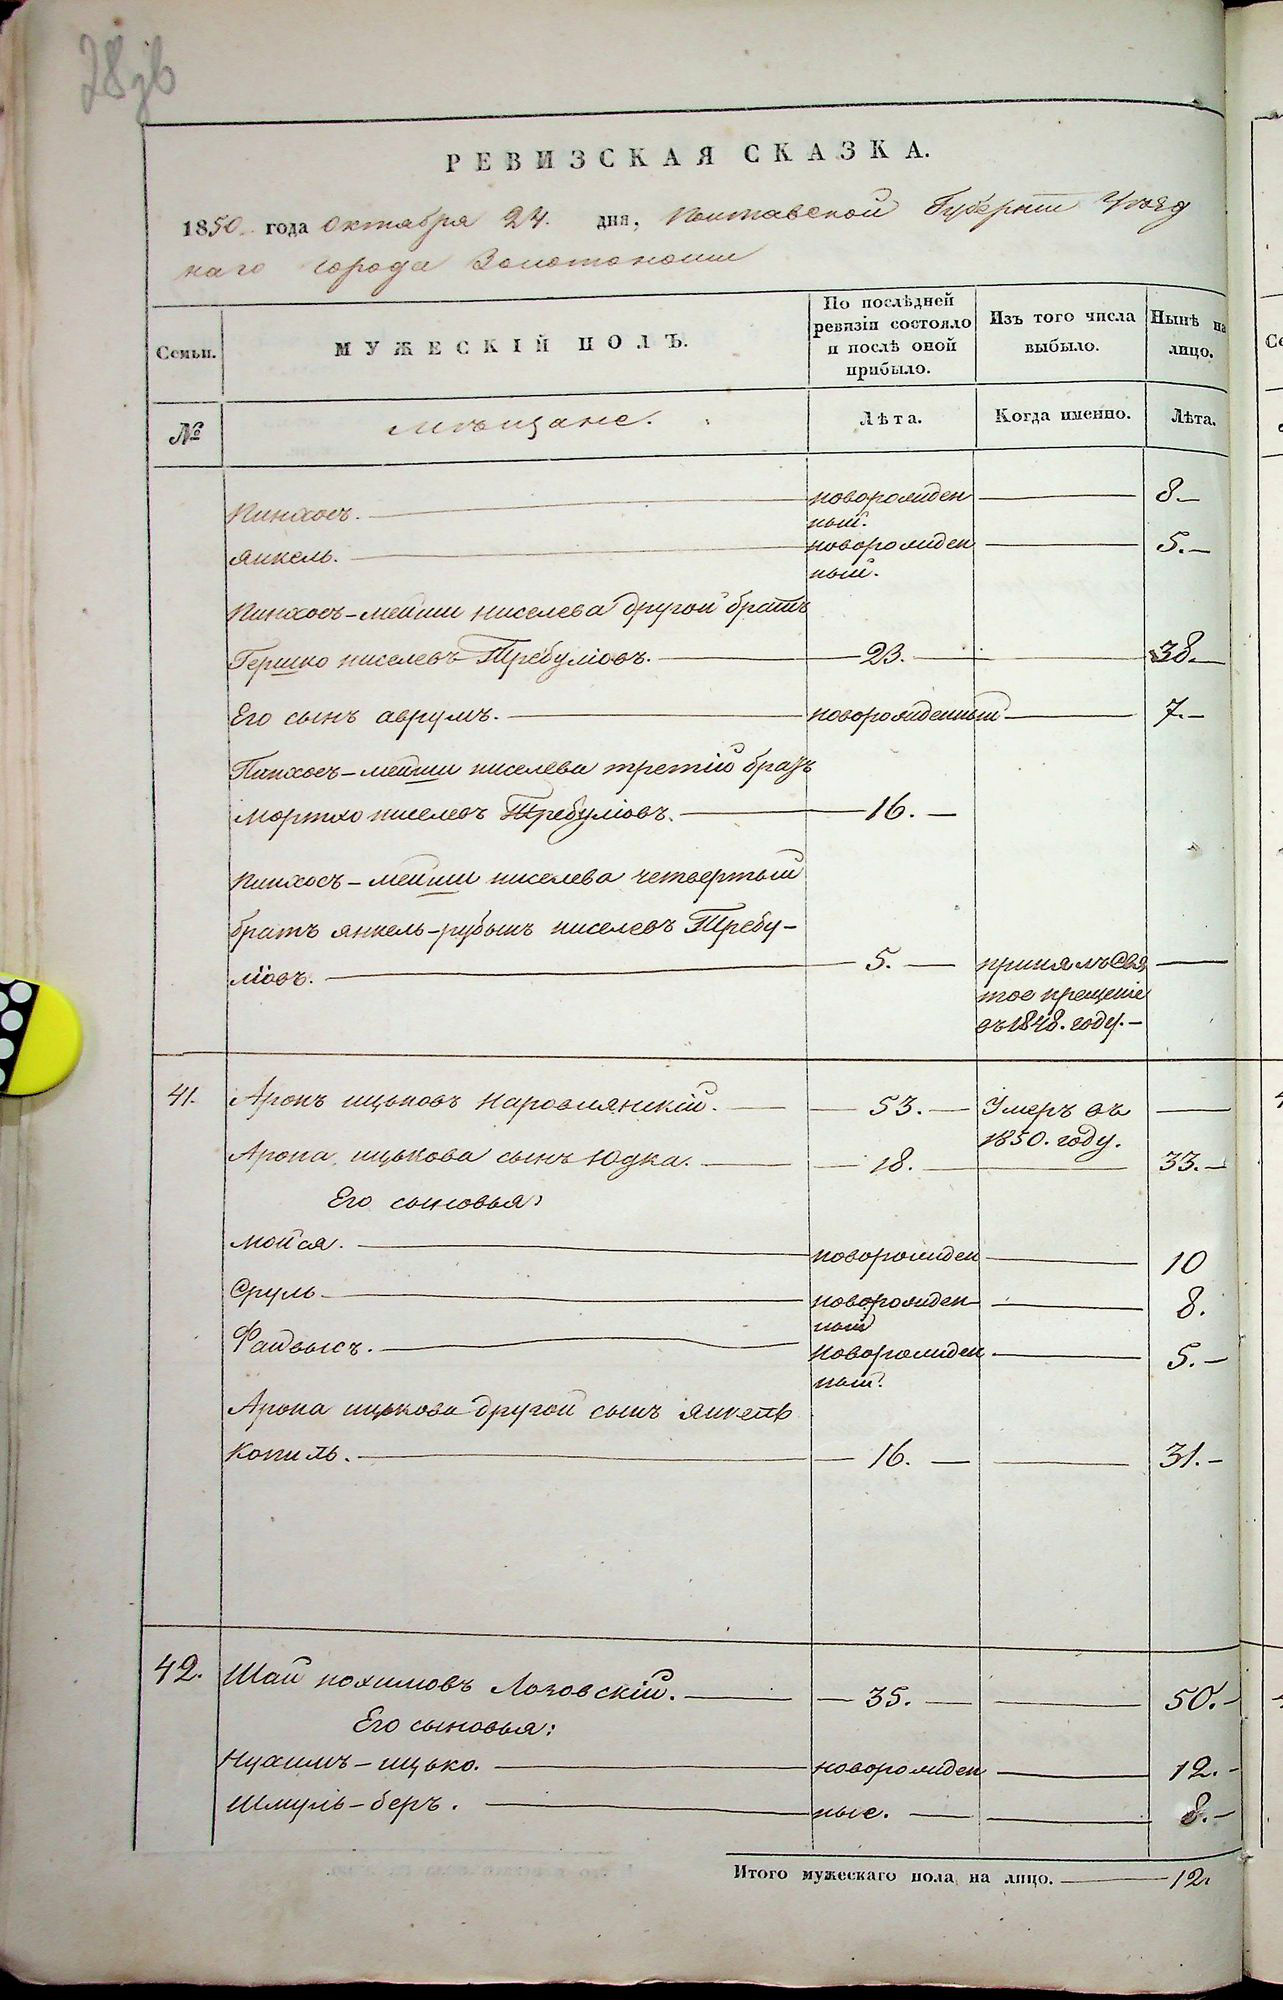 28зв
РЕВИЗСКАЯ СКАЗКА.
1850 года Октября 24. дня, Полтавской Губернии Уѣзд
наго города Золотоноши
Семьи.
МУЖЕСКІЙ ПОЛЪ.
По послѣдней
ревизіи состояло
и послѣ оной
прибыло.
Изъ того числа
выбыло.
Нынѣ на
лицо.
№
мѣщане.
Лѣта.
Когда именно.
Лѣта.
Пинхосъ. новорожден 8.—
ный.
Янкель. новорожден 5.—
ный.
Пинхосъ-мейши ниселева другой братъ
Гершко ниселевъ Требуховъ. 23. 38.—
Его сынъ аврумъ. новорожденный 7.—
Пинхосъ-мейши ниселева третій братъ
Мортхо ниселевъ Требуховъ. 16.—
Пинхосъ-мейши ниселева четвертый
братъ янкель-рубынъ ниселевъ Требу-
ховъ. 5.— принялъ Свя
тое крещеніе
въ 1848. году.—
41. Аронъ ицьковъ Наровлянскій. — 53.— Умеръ въ
1850. году.
Арона ицькова сынъ Юдка. — 18. 33.—
Его сыновья:
Мойся. новорожден 10
Сруль новорожден 8.
ный
Файвысъ. новорожден 5.—
ный.
Арона ицькова другой сынъ янкель
Копиль. — 16. — 31.—
42. Шай нохимовъ Лозовскій. — 35. — 50.—
Его сыновья:
Нуаимъ-ицько. новорожден 12.—
Шмуль-беръ. ные. — 8.—
Итого мужескаго пола на лицо. 12.